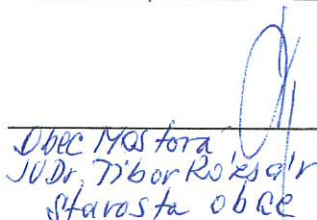 Obec Mostová
JUDr. Tibor Rózsár
starosta obce